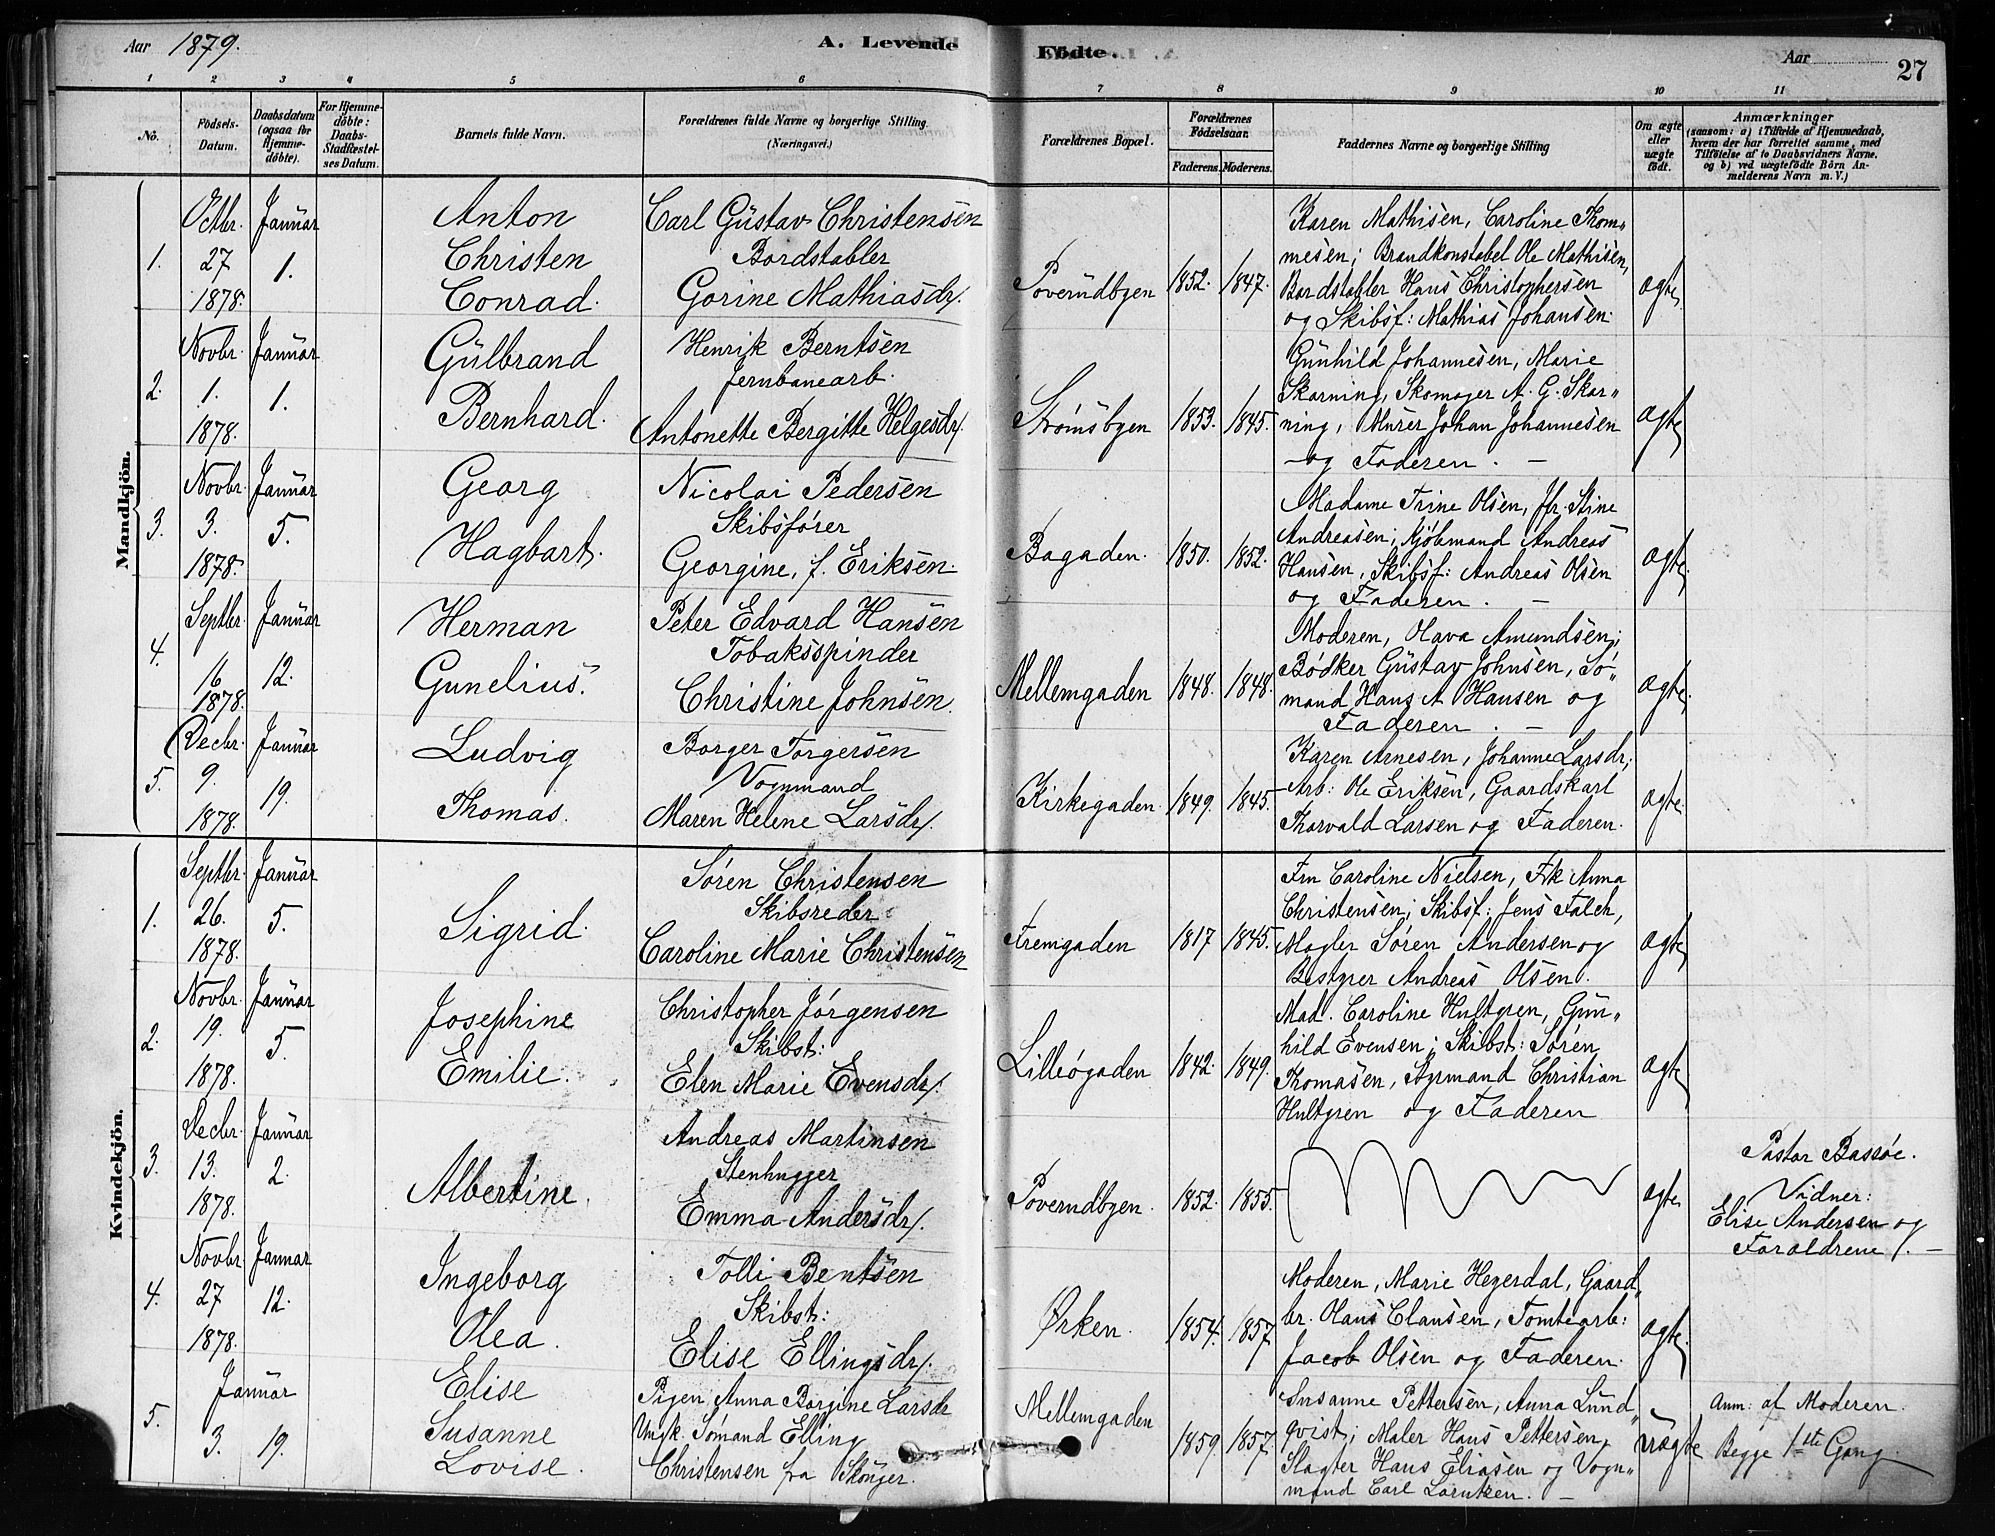 Aar 1879.
A. Levende
Födte.
Aar
27
1 2 3 4 5 6
7 8 9 10 11
No.
Födsels-
Datum.
Daabsdatum
(ogsaa for
Hjemme-
döbte).
For Hjemme-
döbte:
Daabs-
Stadfæstel-
ses Datum.
Barnets fulde Navn.
Forældrenes fulde Navne og borgerlige Stilling
(Næringsvei.)
Forældrenes Bopæl.
Forældrenes
Födselsaar.
Faderens.
Moderens.
Faddernes Navne og borgerlige Stilling
Om ægte
eller
uægte
födt.
Anmærkninger
(saasom: a) i Tilfælde af Hjemmedaab,
hvem der har forrettet samme, med
Tilföielse af to Daabsvidners Navne.
og b) ved uægtefödte Börn An-
melderens Navn m. V.)
Mandkjön.
1.
Octbr.
27
1878.
Januar
1.
Anton
Christen
Conrad.
Carl Gustav Christensen
Bordstabler
Gorine Mathiasdr.
Poverudbyen
1852.
1847.
Karen Mathisen, Caroline Thom„
mesen; Brandkonstabel Ole Mathisen,
Bordstabler Hans Christophersen
og Skibsf: Mathias Johansen.
ægte
2.
Novbr.
1.
1878.
Januar
1.
Gulbrand
Bernhard.
Henrik Berntsen
Jernbanearb.
Antonette Bergitte Helgesdr.
Strømsbyen
1853.
1845.
Gunhild Johannesen, Marie
Skarning, Skomager A. G. Skar„
ning, Murer Johan Johannesen
og Faderen. —
ægte
3.
Novbr.
3.
1878.
Januar
5.
Georg
Hagbart.
Nicolai Pedersen
Skibsfører
Georgine, f. Eriksen.
Bagaden.
1850.
1852.
Madame Trine Olsen, Jfr. Stine
Andreasen; Kjøbmand Andreas
Hansen, Skibsf: Andreas Olsen
og Faderen. —
ægte
4.
Septbr.
16
1878.
Januar
12.
Herman
Gunelius.
Peter Edvard Hansen
Tobaksspinder
Christine Johnsen.
Mellemgaden
1848.
1848.
Moderen, Olava Amundsen;
Bødker Gustav Johnsen, Sø„
mand Hans A Hansen og
Faderen. —
ægte.
5.
Decbr.
9.
1878.
Januar
19.
Ludvig
Thomas.
Borger Torgersen
Vognmand
Maren Helene Larsdr.
Kirkegaden.
1849.
1845.
Karen Arnesen, Johanne Larsdr;
Arb: Ole Eriksen, Gaardskarl
Thorvald Larsen og Faderen.
ægte.
Kvindekjön.
1.
Septbr.
26.
1878.
Januar
5.
Sigrid.
Søren Christensen
Skibsreder
Caroline Marie Christensen
Fremgaden
1817
1845.
Fru Caroline Nielsen, Frk Anna
Christensen; Skibsf: Jens Falch,
Mægler Søren Andersen og
Bestyrer Andreas Olsen.
ægte
2.
Novbr.
19.
1878.
Januar
5.
Josephine
Emilie.
Christopher Jørgensen
Skibst:
Elen Marie Evensdr.
Lilleøgaden
1842.
1849.
Mad. Caroline Hultgren, Gun„
hild Evensen; Skibst: Søren
Thomasen, Styrmand Christian
Hultgren og Faderen
ægte
3.
Decbr.
13.
1878.
Januar
2.
Albertine.
Andreas Martinsen
Stenhugger
Emma Andersdr.
Poverudbyen.
1852.
1855.
ægte
Pastor Bassøe.
Vidner:
Elise Andersen og
Forældrene. —
4.
Novbr.
27
1878.
Januar
12.
Ingeborg
Olea.
Tolli Bentsen
Skibst:
Elise Ellingsdr.
Ørken.
1854.
1857
Moderen, Marie Hegerdal, Gaard„
br. Olaus Clausen, Tomtearb:
Jacob Olsen og Faderen.
ægte.
5.
Januar
3.
19.
Elise
Susanne
Lovise.
Pigen Anna Borgine Larsdr
Ungk. Sømand Elling
Christensen fra
Mellemgaden
1859.
1857.
Susanne Pettersen, Anna Lund„
qvist; Maler Hans Pettersen,
Slagter Hans Eliasen og Vogn„
mand Carl Larntzen. —
uægte
Anm: af Moderen.
Begge 1ste Gang.